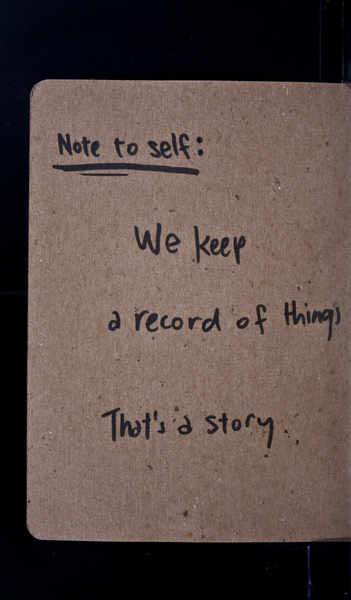 Note to self:
We keep
a record of things
That's a story.